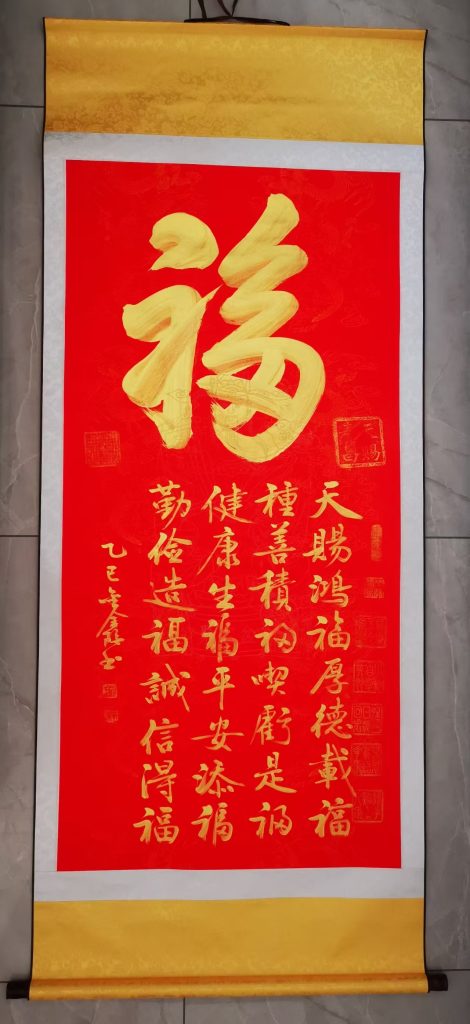 福
天賜鴻福厚德載福
種善積福喫虧是福
健康生福平安添福
勤儉造福誠信得福
乙巳